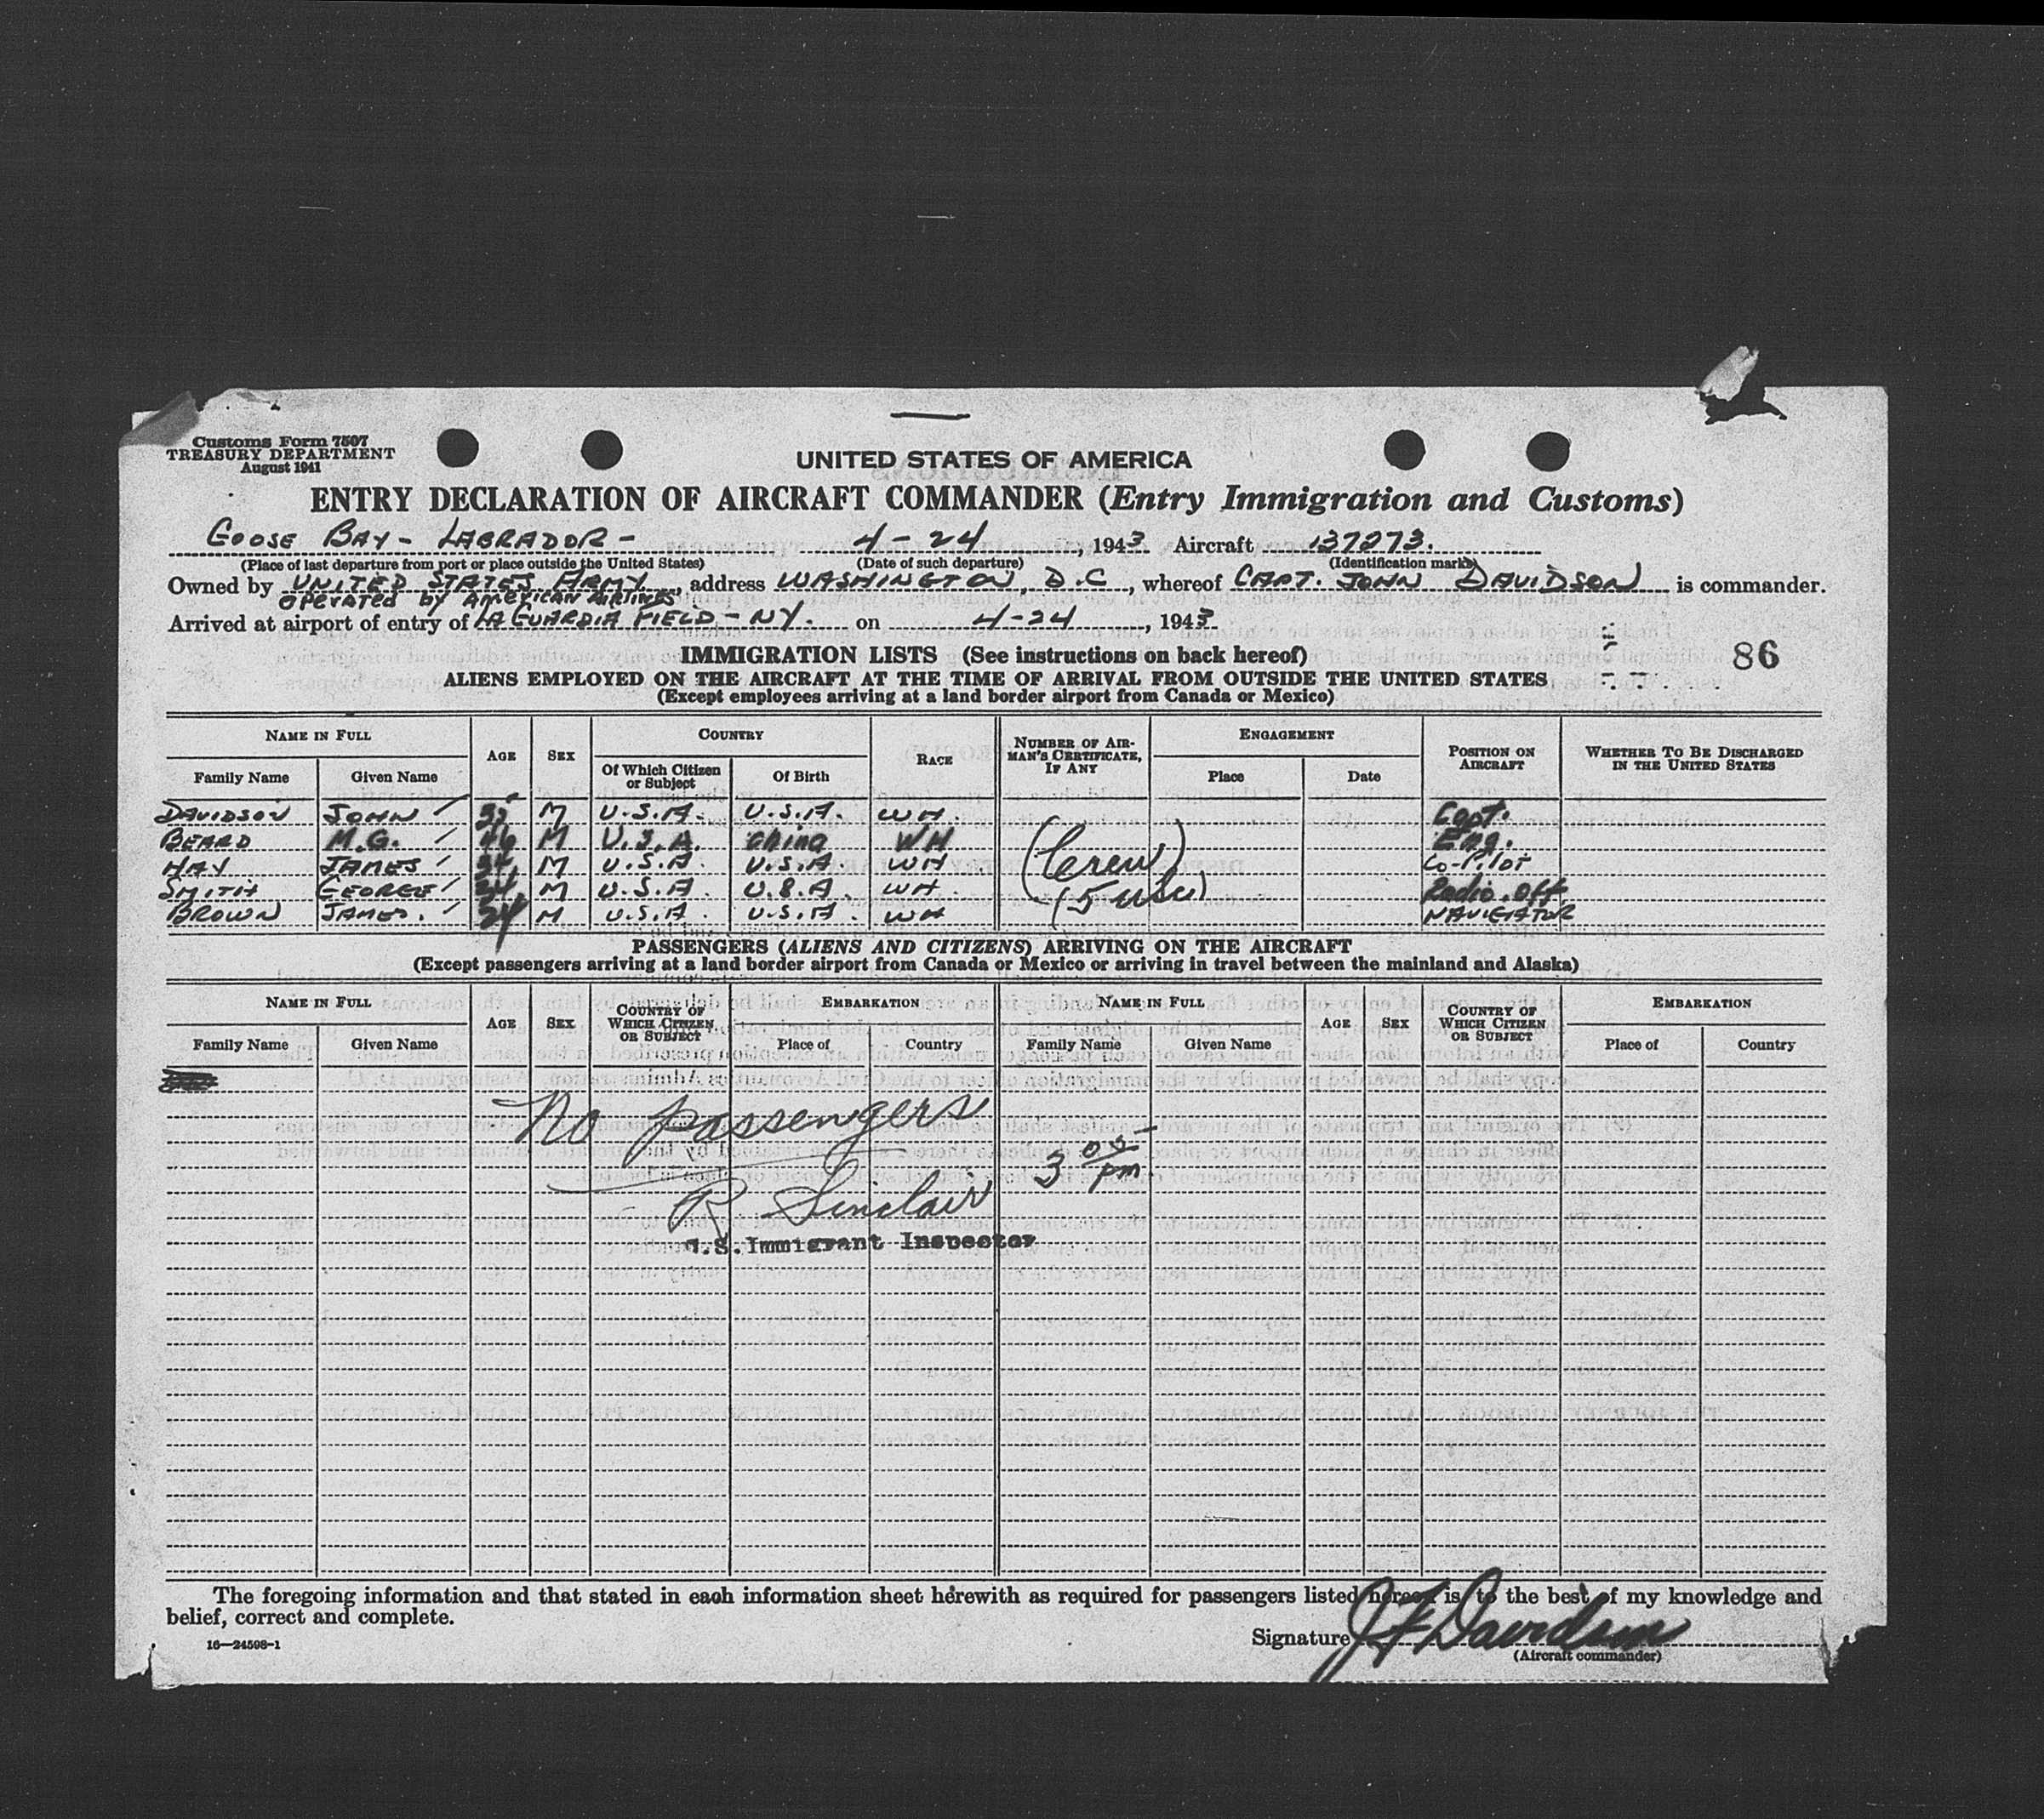 Customs Form 7507
TREASURY DEPARTMENT
August 1941
UNITED STATES OF AMERICA
ENTRY DECLARATION OF AIRCRAFT COMMANDER (Entry Immigration and Customs)
GOOSE BAY - LABRADOR - 4 - 24, 1943 Aircraft 137273.
(Place of last departure from port or place outside the United States) (Date of such departure) (Identification marks)
Owned by UNITED STATES ARMY, address WASHINGTON, D.C, whereof CAPT. JOHN DAVIDSON is commander.
OPERATED by AMERICAN AIRLINES
Arrived at airport of entry of LA GUARDIA FIELD - NY. on 4-24, 1943
IMMIGRATION LISTS (See instructions on back hereof)
86
ALIENS EMPLOYED ON THE AIRCRAFT AT THE TIME OF ARRIVAL FROM OUTSIDE THE UNITED STATES
(Except employees arriving at a land border airport from Canada or Mexico)
NAME IN FULL AGE SEX COUNTRY RACE NUMBER OF AIRMAN'S CERTIFICATE, IF ANY ENGAGEMENT POSITION ON AIRCRAFT WHETHER TO BE DISCHARGED IN THE UNITED STATES
Family Name Given Name Of Which Citizen or Subject Of Birth Place Date
DAVIDSON JOHN M U.S.A. U.S.A. WH. Capt.
BEARD M.G. 46 M U.S.A. China WH Eng.
HAY JAMES 34 M U.S.A. U.S.A. WH (Crew) Co-Pilot
SMITH GEORGE 24 M U.S.A. U.S.A. WH. (5 USC) Radio. Off.
BROWN JAMES. 24 M U.S.A. U.S.A. WH NAVIGATOR
PASSENGERS (ALIENS AND CITIZENS) ARRIVING ON THE AIRCRAFT
(Except passengers arriving at a land border airport from Canada or Mexico or arriving in travel between the mainland and Alaska)
NAME IN FULL AGE SEX COUNTRY OF WHICH CITIZEN OR SUBJECT EMBARKATION NAME IN FULL AGE SEX COUNTRY OF WHICH CITIZEN OR SUBJECT EMBARKATION
Family Name Given Name Place of Country Family Name Given Name Place of Country
No passengers
3 05 pm
R Sinclair
U.S. Immigrant Inspector
The foregoing information and that stated in each information sheet herewith as required for passengers listed hereon is to the best of my knowledge and
belief, correct and complete.
16—24598-1
Signature J F Davidson
(Aircraft commander)